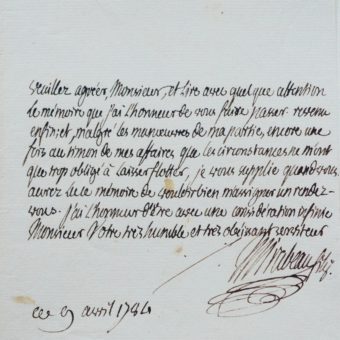 Veuillez agréer, Monsieur, et Lire avec quelque attention
le mémoire que j'ai l'honneur de vous faire passer. revenu
enfin, et, malgré les manœuvres de ma partie, encore une
fois au timon de mes affaires que les circonstances ne m'ont
que trop obligé à laisser flotter, je vous supplie quand vous
aurez Lu le mémoire de vouloir bien m'assigner un rendez-
vous. j'ai l'honneur d'être avec une considération infinie
Monsieur Votre très humble et très obéissant serviteur
Mirabeau fils
ce 9 avril 1784